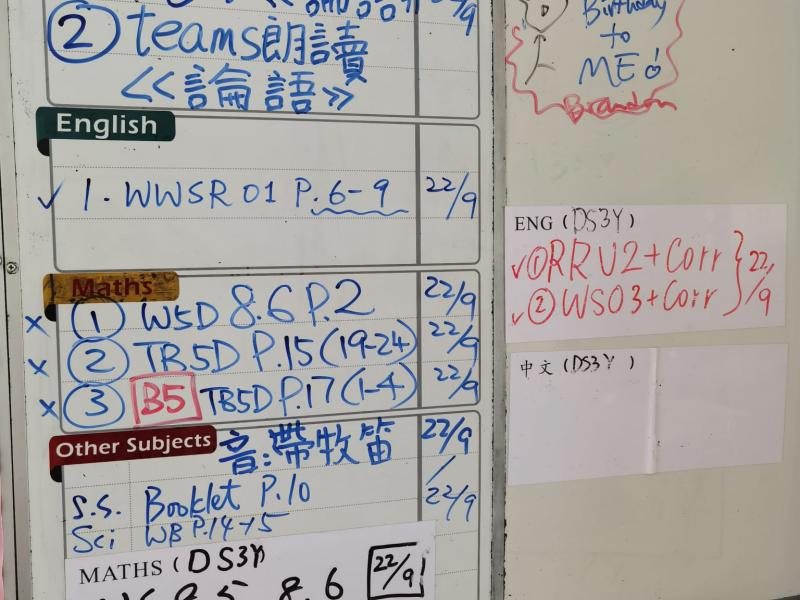 22/9
② teams朗讀
<<論語>>
English
✓ 1. WWSR 01 P. 6-9 22/9
Maths
× ① W5D 8.6 P.2 22/9
× ② TB5D P.15 (19-24) 22/9
× ③ B5 TB5D P.17 (1-4) 22/9
Other Subjects
音:帶牧笛 22/9
S.S. Booklet P.10 22/9
Sci WB P.14-15
MATHS (DS3Y)
8.6 22/9
Birthday
to
ME!
Brandon
ENG (DS3Y)
✓ ① RR U2 + Corr } 22/9
✓ ② WS03 + Corr
中文 (DS3Y)